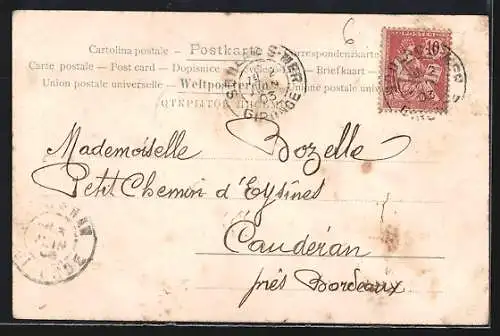 6
Cartolina postale — Postkarte — Correspondenzkarte
Carte postale — Post card — Dopisnice — Briefkaart
Union postale universelle — Weltpostverein — Unione postale universale
ОТКРЫТОЕ ПИСЬМО
GIRONDE
10
POSTES
Mademoiselle Bozelle
Petit Chemin d'Eysines
Caudéran
près Bordeaux